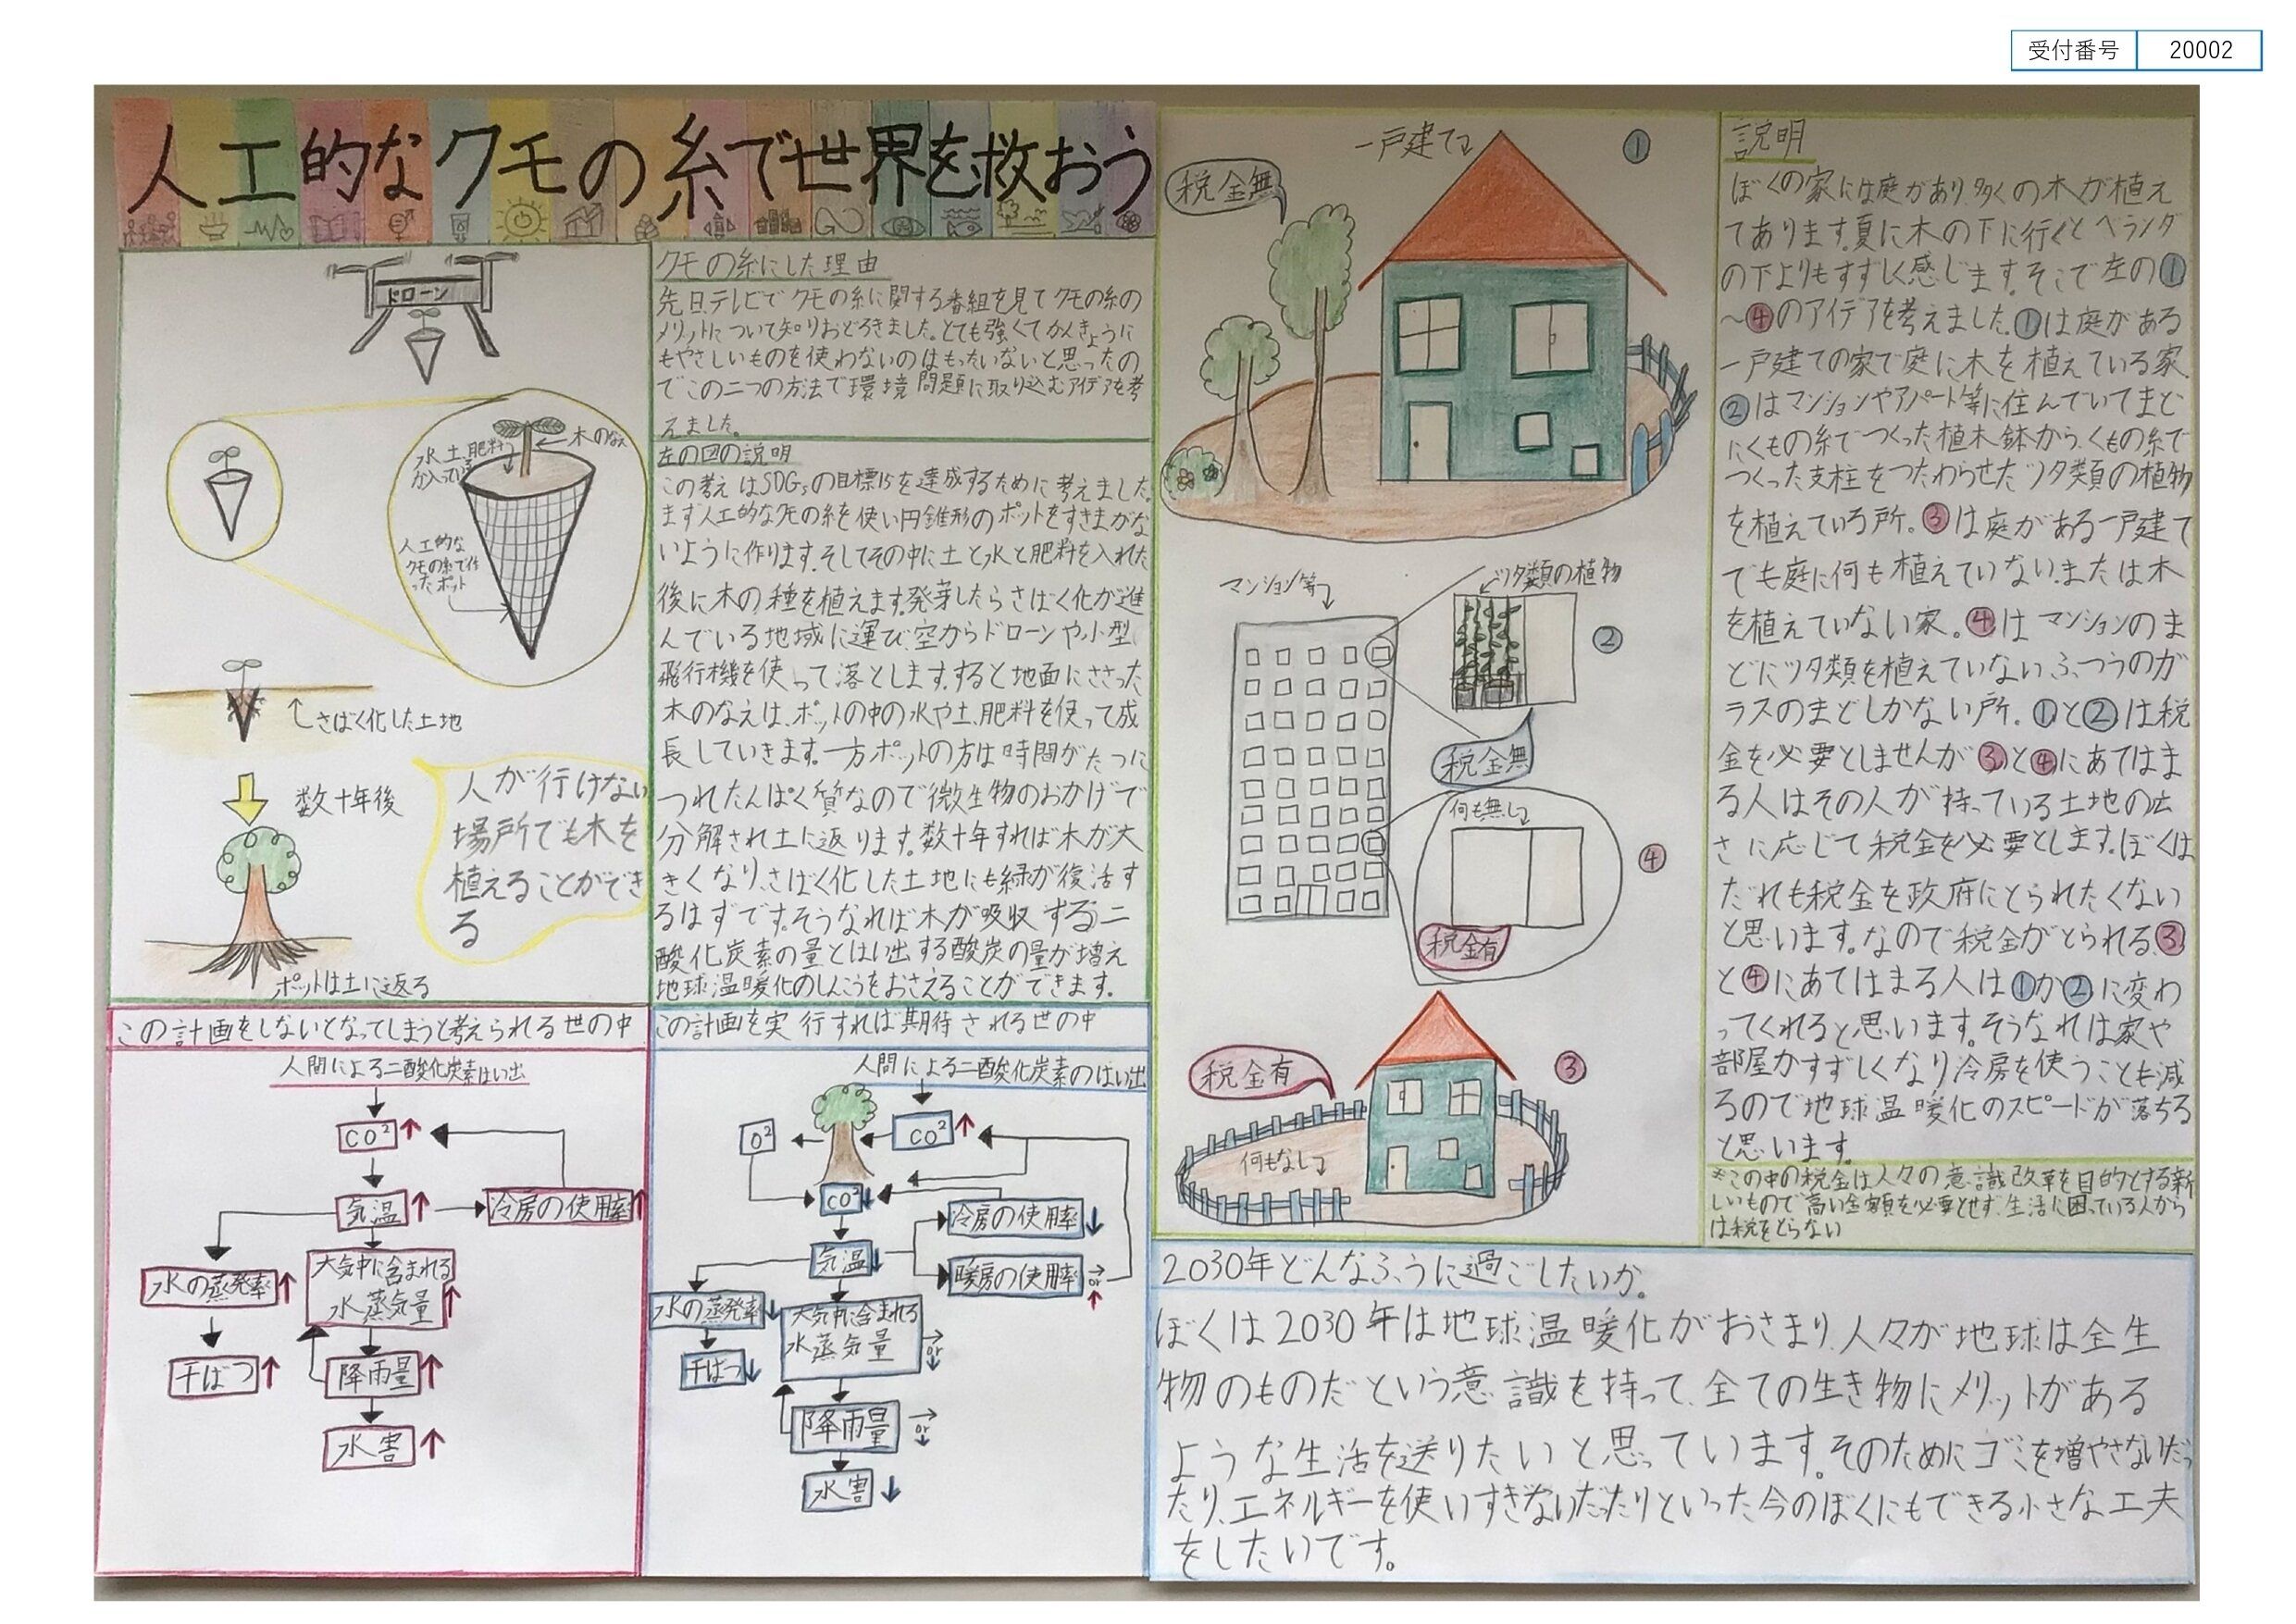 受付番号 20002
人工的なクモの糸で世界を救おう
ドローン
水、土、肥料
が入っている
木のなえ
人工的な
クモの糸で作
ったポット
さばく化した土地
数十年後
人が行けない
場所でも木を
植えることができ
る
ポットは土に返る
クモの糸にした理由
先日テレビでクモの糸に関する番組を見てクモの糸の
メリットについて知りおどろきました。とても強くてかんきょうに
もやさしいものを使わないのはもったいないと思ったの
でこの二つの方法で環境問題に取り込むアイデアを考
えました。
左の図の説明
この考えはSDGsの目標15を達成するために考えました。
まず人工的なクモの糸を使い円錐形のポットをすきまがな
いように作ります。そしてその中に土と水と肥料を入れた
後に木の種を植えます。発芽したらさばく化が進
んでいる地域に運び、空からドローンや小型
飛行機を使って落とします。すると地面にささった
木のなえは、ポットの中の水や土、肥料を使って成
長していきます。一方ポットの方は時間がたつに
つれたんぱく質なので微生物のおかげで
分解され土に返ります。数十年すれば木が大
きくなり、さばく化した土地にも緑が復活す
るはずです。そうなれば木が吸収する二
酸化炭素の量とはい出する酸炭の量が増え
地球温暖化のしんこうをおさえることができます。
この計画をしないとなってしまうと考えられる世の中
人間による二酸化炭素はい出
CO²↑
気温↑
冷房の使用率↑
水の蒸発率↑
大気中に含まれる
水蒸気量↑
干ばつ↑
降雨量↑
水害↑
この計画を実行すれば期待される世の中
人間による二酸化炭素のはい出
O²
CO²↑
CO²↓
冷房の使用率↓
気温↓
暖房の使用率→or↑
水の蒸発率↓
大気中に含まれる
水蒸気量→or↓
干ばつ↓
降雨量→or↓
水害↓
一戸建て
①
税金無
マンション等
ツタ類の植物
②
税金無
何も無し
④
税金有
税金有
③
何もなし
説明
ぼくの家には庭があり多くの木が植え
てあります。夏に木の下に行くとベランダ
の下よりもすずしく感じます。そこで左の①
～④のアイデアを考えました。①は庭がある
一戸建ての家で庭に木を植えている家。
②はマンションやアパート等に住んでいてまど
にくもの糸でつくった植木鉢から、くもの糸で
つくった支柱をつたわらせたツタ類の植物
を植えている所。③は庭がある一戸建て
でも庭に何も植えていない、または木
を植えていない家。④はマンションのま
どにツタ類を植えていないふつうのガ
ラスのまどしかない所。①と②は税
金を必要としませんが③と④にあてはま
る人はその人が持っている土地の広
さに応じて税金を必要とします。ぼくは
だれも税金を政府にとられたくない
と思います。なので税金がとられる③
と④にあてはまる人は①か②に変わ
ってくれると思います。そうなれは家や
部屋がすずしくなり冷房を使うことも減
るので地球温暖化のスピードが落ちる
と思います。
*この中の税金は人々の意識改革を目的とする新
しいもので高い金額を必要とせず、生活に困っている人から
は税をとらない
2030年どんなふうに過ごしたいか。
ぼくは2030年は地球温暖化がおさまり、人々が地球は全生
物のものだという意識を持って、全ての生き物にメリットがある
ような生活を送りたいと思っています。そのためにゴミを増やさないだっ
たり、エネルギーを使いすぎないだったりといった今のぼくにもできる小さな工夫
をしたいです。